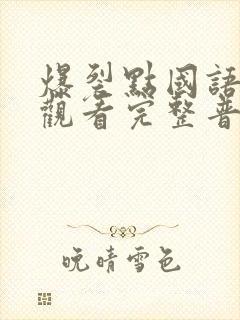 爆裂點國語
觀看完整普
晚晴雪色